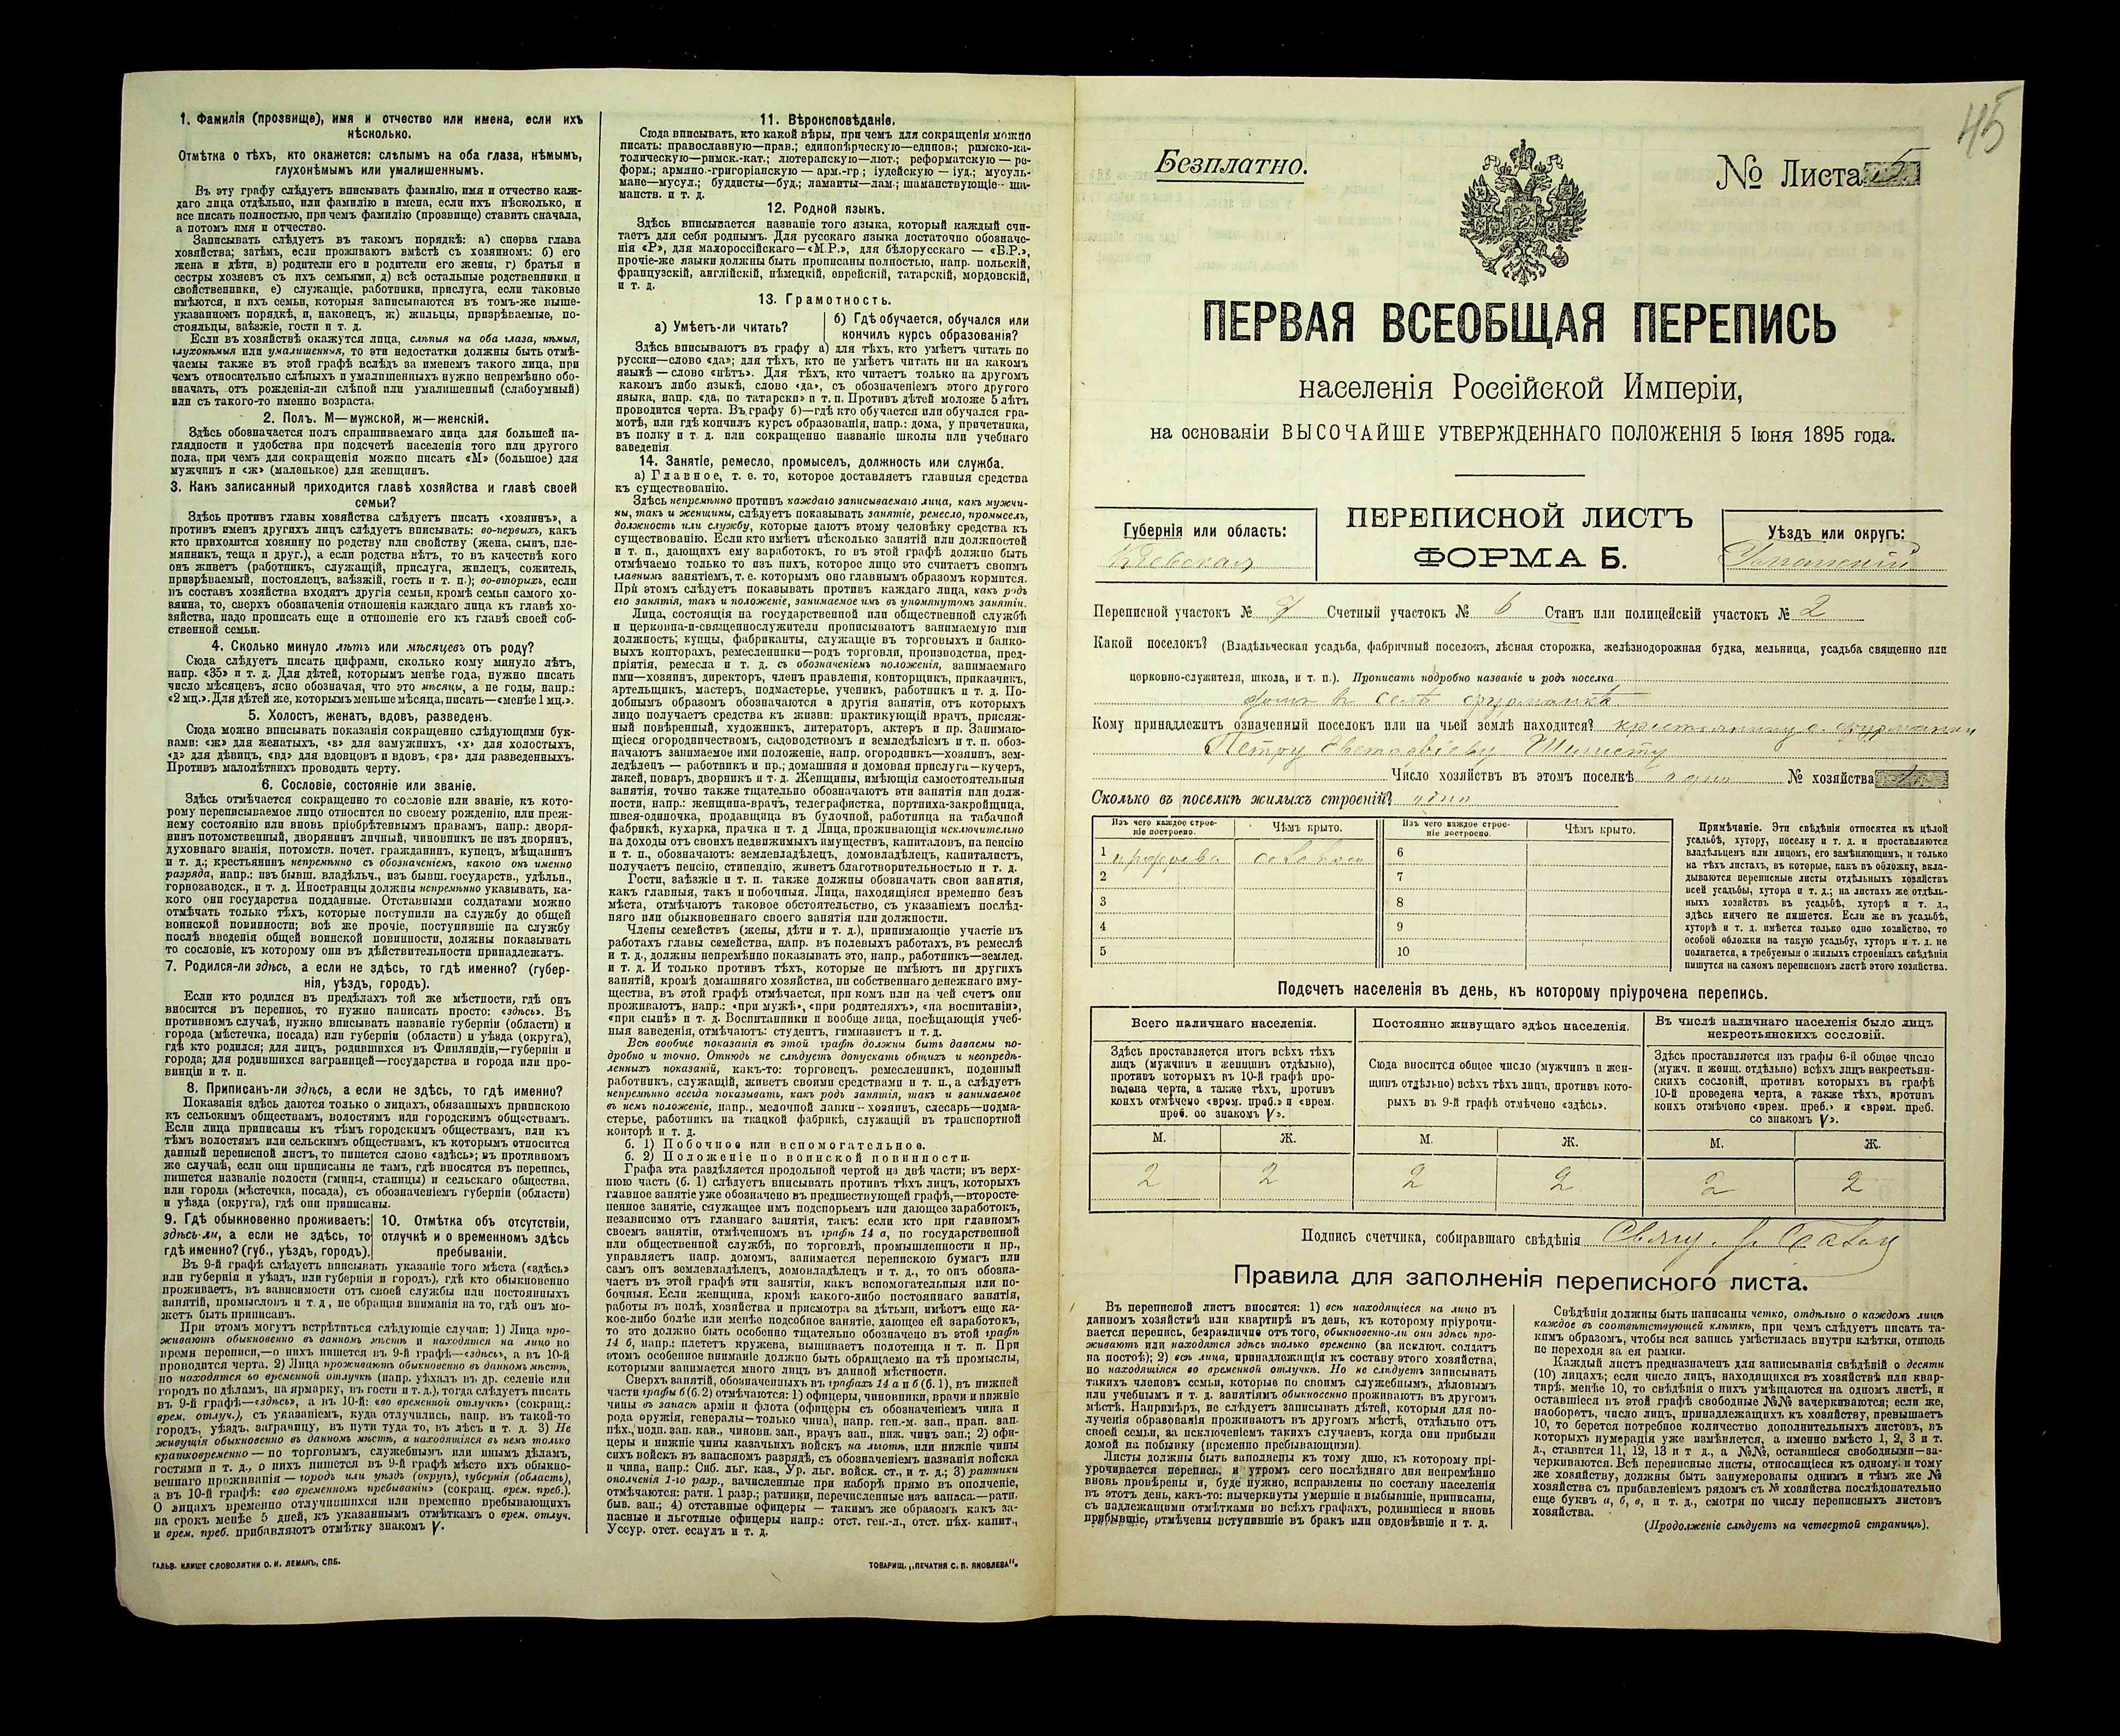 1. Фамилія (прозвище), имя и отчество или имена, если ихъ
нѣсколько.
Отмѣтка о тѣхъ, кто окажется: слѣпымъ на оба глаза, нѣмымъ,
глухонѣмымъ или умалишеннымъ.
Въ эту графу слѣдуетъ вписывать фамилію, имя и отчество каж-
даго лица отдѣльно, или фамилію и имена, если ихъ нѣсколько, и
все писать полностью, при чемъ фамилію (прозвище) ставить сначала,
а потомъ имя и отчество.
Записывать слѣдуетъ въ такомъ порядкѣ: а) сперва глава
хозяйства; затѣмъ, если проживаютъ вмѣстѣ съ хозяиномъ: б) его
жена и дѣти, в) родители его и родители его жены, г) братья и
сестры хозяевъ съ ихъ семьями, д) всѣ остальные родственники и
свойственники, е) служащіе, работники, прислуга, если таковые
имѣются, и ихъ семьи, которыя записываются въ томъ-же выше-
указанномъ порядкѣ, и, наконецъ, ж) жильцы, призрѣваемые, по-
стояльцы, заѣзжіе, гости и т. д.
Если въ хозяйствѣ окажутся лица, слѣпыя на оба глаза, нѣмыя,
глухонѣмыя или умалишенныя, то эти недостатки должны быть отмѣ-
чаемы также въ этой графѣ вслѣдъ за именемъ такого лица, при
чемъ относительно слѣпыхъ и умалишенныхъ нужно непремѣнно обо-
значать, отъ рожденія-ли слѣпой или умалишенный (слабоумный)
или съ такого-то именно возраста.
2. Полъ. М—мужской, ж—женскій.
Здѣсь обозначается полъ спрашиваемаго лица для большей на-
глядности и удобства при подсчетѣ населенія того или другого
пола, при чемъ для сокращенія можно писать «М» (большое) для
мужчинъ и «ж» (маленькое) для женщинъ.
3. Какъ записанный приходится главѣ хозяйства и главѣ своей
семьи?
Здѣсь противъ главы хозяйства слѣдуетъ писать «хозяинъ», а
противъ именъ другихъ лицъ слѣдуетъ вписывать: во-первыхъ, какъ
кто приходится хозяину по родству или свойству (жена, сынъ, пле-
мянникъ, теща и друг.), а если родства нѣтъ, то въ качествѣ кого
онъ живетъ (работникъ, служащій, прислуга, жилецъ, сожитель,
призрѣваемый, постоялецъ, заѣзжій, гость и т. п.); во-вторыхъ, если
въ составъ хозяйства входятъ другія семьи, кромѣ семьи самого хо-
зяина, то, сверхъ обозначенія отношенія каждаго лица къ главѣ хо-
зяйства, надо прописать еще и отношеніе его къ главѣ своей соб-
ственной семьи.
4. Сколько минуло лѣтъ или мѣсяцевъ отъ роду?
Сюда слѣдуетъ писать цифрами, сколько кому минуло лѣтъ,
напр. «35» и т. д. Для дѣтей, которымъ менѣе года, нужно писать
число мѣсяцевъ, ясно обозначая, что это мѣсяцы, а не годы, напр.:
«2 мц.». Для дѣтей же, которымъ меньше мѣсяца, писать—«менѣе 1 мц.».
5. Холостъ, женатъ, вдовъ, разведенъ.
Сюда можно вписывать показанія сокращенно слѣдующими бук-
вами: «ж» для женатыхъ, «з» для замужнихъ, «х» для холостыхъ,
«д» для дѣвицъ, «вд» для вдовцовъ и вдовъ, «рз» для разведенныхъ.
Противъ малолѣтнихъ проводить черту.
6. Сословіе, состояніе или званіе.
Здѣсь отмѣчается сокращенно то сословіе или званіе, къ кото-
рому переписываемое лицо относится по своему рожденію, или преж-
нему состоянію или вновь пріобрѣтеннымъ правамъ, напр.: дворя-
нинъ потомственный, дворянинъ личный, чиновникъ не изъ дворянъ,
духовнаго званія, потомств. почет. гражданинъ, купецъ, мѣщанинъ
и т. д.; крестьянинъ непремѣнно съ обозначеніемъ, какого онъ именно
разряда, напр.: изъ бывш. владѣльч., изъ бывш. государств., удѣльн.,
горнозаводск., и т. д. Иностранцы должны непремѣнно указывать, ка-
кого они государства подданные. Отставными солдатами можно
отмѣчать только тѣхъ, которые поступили на службу до общей
воинской повинности; всѣ же прочіе, поступившіе на службу
послѣ введенія общей воинской повинности, должны показывать
то сословіе, къ которому они въ дѣйствительности принадлежатъ.
7. Родился-ли здѣсь, а если не здѣсь, то гдѣ именно? (губер-
нія, уѣздъ, городъ).
Если кто родился въ предѣлахъ той же мѣстности, гдѣ онъ
вносится въ перепись, то нужно написать просто: «здѣсь». Въ
противномъ случаѣ, нужно вписывать названіе губерніи (области) и
города (мѣстечка, посада) или губерніи (области) и уѣзда (округа),
гдѣ кто родился; для лицъ, родившихся въ Финляндіи,—губерніи и
города; для родившихся заграницей—государства и города или про-
винціи и т. п.
8. Приписанъ-ли здѣсь, а если не здѣсь, то гдѣ именно?
Показанія здѣсь даются только о лицахъ, обязанныхъ припискою
къ сельскимъ обществамъ, волостямъ или городскимъ обществамъ.
Если лица приписаны къ тѣмъ городскимъ обществамъ, или къ
тѣмъ волостямъ или сельскимъ обществамъ, къ которымъ относится
данный переписной листъ, то пишется слово «здѣсь»; въ противномъ
же случаѣ, если они приписаны не тамъ, гдѣ вносятся въ перепись,
пишется названіе волости (гмины, станицы) и сельскаго общества,
или города (мѣстечка, посада), съ обозначеніемъ губерніи (области)
и уѣзда (округа), гдѣ они приписаны.
9. Гдѣ обыкновенно проживаетъ:
здѣсь-ли, а если не здѣсь, то
гдѣ именно? (губ., уѣздъ, городъ).
10. Отмѣтка объ отсутствіи,
отлучкѣ и о временномъ здѣсь
пребываніи.
Въ 9-й графѣ слѣдуетъ вписывать указаніе того мѣста («здѣсь»
или губернія и уѣздъ, или губернія и городъ), гдѣ кто обыкновенно
проживаетъ, въ зависимости отъ своей службы или постоянныхъ
занятій, промысловъ и т. д., не обращая вниманія на то, гдѣ онъ мо-
жетъ быть приписанъ.
При этомъ могутъ встрѣтиться слѣдующіе случаи: 1) Лица про-
живаютъ обыкновенно въ данномъ мѣстѣ и находятся на лицо во
время переписи,—о нихъ пишется въ 9-й графѣ—«здѣсь», а въ 10-й
проводится черта. 2) Лица проживаютъ обыкновенно въ данномъ мѣстѣ,
но находятся во временной отлучкѣ (напр. уѣхалъ въ др. селеніе или
городъ по дѣламъ, на ярмарку, въ гости и т. д.), тогда слѣдуетъ писать
въ 9-й графѣ—«здѣсь», а въ 10-й: «во временной отлучкѣ» (сокращ.:
врем. отлуч.), съ указаніемъ, куда отлучились, напр. въ такой-то
городъ, уѣздъ, заграницу, въ пути туда то, въ лѣсъ и т. д. 3) Не
живущія обыкновенно въ данномъ мѣстѣ, а находящіяся въ немъ только
кратковременно — по торговымъ, служебнымъ или инымъ дѣламъ,
гостями и т. д., о нихъ пишется въ 9-й графѣ мѣсто ихъ обыкно-
веннаго проживанія — городъ или уѣздъ (округъ), губернія (область),
а въ 10-й графѣ: «во временномъ пребываніи» (сокращ. врем. преб.).
О лицахъ временно отлучившихся или временно пребывающихъ
на срокъ менѣе 5 дней, къ указаннымъ отмѣткамъ о врем. отлуч.
и врем. преб. прибавляютъ отмѣтку знакомъ V.
ГАЛЬВ. КЛИШЕ СЛОВОЛИТНИ О. И. ЛЕМАНЪ, СПБ.
11. Вѣроисповѣданіе.
Сюда вписывать, кто какой вѣры, при чемъ для сокращенія можно
писать: православную—прав.; единовѣрческую—единов.; римско-ка-
толическую—римск.-кат.; лютеранскую—лют.; реформатскую — ре-
форм.; армяно-григоріанскую — арм.-гр.; іудейскую — іуд.; мусуль-
мане—мусул.; буддисты—буд.; ламаиты—лам.; шаманствующіе—ша-
манств. и т. д.
12. Родной языкъ.
Здѣсь вписывается названіе того языка, который каждый счи-
таетъ для себя роднымъ. Для русскаго языка достаточно обозначе-
нія «Р», для малороссійскаго—«М.Р.», для бѣлорусскаго — «Б.Р.»,
прочіе-же языки должны быть прописаны полностью, напр. польскій,
французскій, англійскій, нѣмецкій, еврейскій, татарскій, мордовскій,
и т. д.
13. Грамотность.
а) Умѣетъ-ли читать?
б) Гдѣ обучается, обучался или
кончилъ курсъ образованія?
Здѣсь вписываютъ въ графу а) для тѣхъ, кто умѣетъ читать по
русски—слово «да»; для тѣхъ, кто не умѣетъ читать ни на какомъ
языкѣ — слово «нѣтъ». Для тѣхъ, кто читаетъ только на другомъ
какомъ либо языкѣ, слово «да», съ обозначеніемъ этого другого
языка, напр. «да, по татарски» и т. п. Противъ дѣтей моложе 5 лѣтъ
проводится черта. Въ графу б)—гдѣ кто обучается или обучался гра-
мотѣ, или гдѣ кончилъ курсъ образованія, напр.: дома, у причетника,
въ полку и т. д. или сокращенно названіе школы или учебнаго
заведенія.
14. Занятіе, ремесло, промыселъ, должность или служба.
а) Главное, т. е. то, которое доставляетъ главныя средства
къ существованію.
Здѣсь непремѣнно противъ каждаго записываемаго лица, какъ мужчи-
ны, такъ и женщины, слѣдуетъ показывать занятіе, ремесло, промыселъ,
должность или службу, которые даютъ этому человѣку средства къ
существованію. Если кто имѣетъ нѣсколько занятій или должностей
и т. п., дающихъ ему заработокъ, то въ этой графѣ должно быть
отмѣчаемо только то изъ нихъ, которое лицо это считаетъ своимъ
главнымъ занятіемъ, т. е. которымъ оно главнымъ образомъ кормится.
При этомъ слѣдуетъ показывать противъ каждаго лица, какъ родъ
его занятія, такъ и положеніе, занимаемое имъ въ упомянутомъ занятіи.
Лица, состоящія на государственной или общественной службѣ
и церковно-и-священнослужители прописываютъ занимаемую ими
должность; купцы, фабриканты, служащіе въ торговыхъ и банко-
выхъ конторахъ, ремесленники—родъ торговли, производства, пред-
пріятія, ремесла и т. д. съ обозначеніемъ положенія, занимаемаго
ими—хозяинъ, директоръ, членъ правленія, конторщикъ, приказчикъ,
артельщикъ, мастеръ, подмастерье, ученикъ, работникъ и т. д. По-
добнымъ образомъ обозначаются и другія занятія, отъ которыхъ
лицо получаетъ средства къ жизни: практикующій врачъ, присяж-
ный повѣренный, художникъ, литераторъ, актеръ и пр. Занимаю-
щіеся огородничествомъ, садоводствомъ и земледѣліемъ и т. п. обоз-
начаютъ занимаемое ими положеніе, напр. огородникъ—хозяинъ, зем-
ледѣлецъ — работникъ и пр.; домашняя и домовая прислуга—кучеръ,
лакей, поваръ, дворникъ и т. д. Женщины, имѣющія самостоятельныя
занятія, точно также тщательно обозначаютъ эти занятія или долж-
ности, напр.: женщина-врачъ, телеграфистка, портниха-закройщица,
швея-одиночка, продавщица въ булочной, работница на табачной
фабрикѣ, кухарка, прачка и т. д. Лица, проживающія исключительно
на доходы отъ своихъ недвижимыхъ имуществъ, капиталовъ, на пенсію
и т. п., обозначаютъ: землевладѣлецъ, домовладѣлецъ, капиталистъ,
получаетъ пенсію, стипендію, живетъ благотворительностью и т. д.
Гости, заѣзжіе и т. п. также должны обозначать свои занятія,
какъ главныя, такъ и побочныя. Лица, находящіяся временно безъ
мѣста, отмѣчаютъ таковое обстоятельство, съ указаніемъ послѣд-
няго или обыкновеннаго своего занятія или должности.
Члены семействъ (жены, дѣти и т. д.), принимающіе участіе въ
работахъ главы семейства, напр. въ полевыхъ работахъ, въ ремеслѣ
и т. д., должны непремѣнно показывать это, напр., работникъ—землед.
и т. д. И только противъ тѣхъ, которые не имѣютъ ни другихъ
занятій, кромѣ домашняго хозяйства, ни собственнаго денежнаго иму-
щества, въ этой графѣ отмѣчается, при комъ или на чей счетъ они
проживаютъ, напр.: «при мужѣ», «при родителяхъ», «на воспитаніи»,
«при сынѣ» и т. д. Воспитанники и вообще лица, посѣщающія учеб-
ныя заведенія, отмѣчаютъ: студентъ, гимназистъ и т. д.
Всѣ вообще показанія въ этой графѣ должны быть даваемы по-
дробно и точно. Отнюдь не слѣдуетъ допускать общихъ и неопредѣ-
ленныхъ показаній, какъ-то: торговецъ, ремесленникъ, поденный
работникъ, служащій, живетъ своими средствами и т. п., а слѣдуетъ
непремѣнно всегда показывать, какъ родъ занятія, такъ и занимаемое
въ немъ положеніе, напр., мелочной лавки—хозяинъ, слесарь—подма-
стерье, работникъ на ткацкой фабрикѣ, служащій въ транспортной
конторѣ и т. д.
б. 1) Побочное или вспомогательное.
б. 2) Положеніе по воинской повинности.
Графа эта раздѣляется продольной чертой на двѣ части; въ верх-
нюю часть (б. 1) слѣдуетъ вписывать противъ тѣхъ лицъ, которыхъ
главное занятіе уже обозначено въ предшествующей графѣ,—второсте-
пенное занятіе, служащее имъ подспорьемъ или дающее заработокъ,
независимо отъ главнаго занятія, такъ: если кто при главномъ
своемъ занятіи, отмѣченномъ въ графѣ 14 а, по государственной
или общественной службѣ, по торговлѣ, промышленности и пр.,
управляетъ напр. домомъ, занимается перепискою бумагъ или
самъ онъ землевладѣлецъ, домовладѣлецъ и т. д., то онъ обозна-
чаетъ въ этой графѣ эти занятія, какъ вспомогательныя или по-
бочныя. Если женщина, кромѣ какого-либо постояннаго занятія,
работы въ полѣ, хозяйства и присмотра за дѣтьми, имѣетъ еще ка-
кое-либо болѣе или менѣе подсобное занятіе, дающее ей заработокъ,
то это должно быть особенно тщательно обозначено въ этой графѣ
14 б, напр.: плететъ кружева, вышиваетъ полотенца и т. п. При
этомъ особенное вниманіе должно быть обращаемо на тѣ промыслы,
которыми занимается много лицъ въ данной мѣстности.
Сверхъ занятій, обозначенныхъ въ графахъ 14 а и б (б. 1), въ нижней
части графы б (б. 2) отмѣчаются: 1) офицеры, чиновники, врачи и нижніе
чины въ запасѣ арміи и флота (офицеры съ обозначеніемъ чина и
рода оружія, генералы—только чина), напр. ген.-м. зап., прап. зап.
пѣх., подп. зап. кав., чиновн. зап., врачъ зап., ниж. чинъ зап.; 2) офи-
церы и нижніе чины казачьихъ войскъ на льготѣ, или нижніе чины
сихъ войскъ въ запасномъ разрядѣ, съ обозначеніемъ названія войска
и чина, напр.: Сиб. льг. каз., Ур. льг. войск. ст., и т. д.; 3) ратники
ополченія 1-го разр., зачисленные при наборѣ прямо въ ополченіе,
отмѣчаются: ратн. 1 разр.; ратники, перечисленные изъ запаса.—ратн.
быв. зап.; 4) отставные офицеры — такимъ же образомъ какъ за-
пасные и льготные офицеры напр.: отст. ген.-л., отст. пѣх. капит.,
Уссур. отст. есаулъ и т. д.
ТОВАРИЩ. „ПЕЧАТНЯ С. П. ЯКОВЛЕВА“.
45
Безплатно.
№ Листа 5
ПЕРВАЯ ВСЕОБЩАЯ ПЕРЕПИСЬ
населенія Россійской Имперіи,
на основаніи ВЫСОЧАЙШЕ УТВЕРЖДЕННАГО ПОЛОЖЕНІЯ 5 Іюня 1895 года.
Губернія или область:
Кіевская
ПЕРЕПИСНОЙ ЛИСТЪ
ФОРМА Б.
Уѣздъ или округъ:
Уманскій
Переписной участокъ № 7 Счетный участокъ № 6 Станъ или полицейскій участокъ № 2
Какой поселокъ? (Владѣльческая усадьба, фабричный поселокъ, лѣсная сторожка, желѣзнодорожная будка, мельница, усадьба священно или
церковно-служителя, школа, и т. п.). Прописать подробно названіе и родъ поселка
домъ въ селѣ Фурманкѣ
Кому принадлежитъ означенный поселокъ или на чьей землѣ находится? крестьянину с. Фурманки
Петру
Число хозяйствъ въ этомъ поселкѣ одно № хозяйства 1
Сколько въ поселкѣ жилыхъ строеній? одно
Изъ чего каждое строе-
ніе построено.
Чѣмъ крыто.
Изъ чего каждое строе-
ніе построено.
Чѣмъ крыто.
1 изъ дерева соломою 6
2 7
3 8
4 9
5 10
Примѣчаніе. Эти свѣдѣнія относятся къ цѣлой
усадьбѣ, хутору, поселку и т. д. и проставляются
владѣльцемъ или лицомъ, его замѣняющимъ, и только
на тѣхъ листахъ, въ которые, какъ въ обложку, вкла-
дываются переписные листы отдѣльныхъ хозяйствъ
всей усадьбы, хутора и т. д.; на листахъ же отдѣль-
ныхъ хозяйствъ въ усадьбѣ, хуторѣ и т. д.,
здѣсь ничего не пишется. Если же въ усадьбѣ,
хуторѣ и т. д. имѣется только одно хозяйство, то
особой обложки на такую усадьбу, хуторъ и т. д. не
полагается, а требуемыя о жилыхъ строеніяхъ свѣдѣнія
пишутся на самомъ переписномъ листѣ этого хозяйства.
Подсчетъ населенія въ день, къ которому пріурочена перепись.
Всего наличнаго населенія.
Постоянно живущаго здѣсь населенія.
Въ числѣ наличнаго населенія было лицъ
некрестьянскихъ сословій.
Здѣсь проставляется итогъ всѣхъ тѣхъ
лицъ (мужчинъ и женщинъ отдѣльно),
противъ которыхъ въ 10-й графѣ про-
ведена черта, а также тѣхъ, противъ
коихъ отмѣчено «врем. преб.» и «врем.
преб. со знакомъ V».
Сюда вносится общее число (мужчинъ и жен-
щинъ отдѣльно) всѣхъ тѣхъ лицъ, противъ кото-
рыхъ въ 9-й графѣ отмѣчено «здѣсь».
Здѣсь проставляется изъ графы 6-й общее число
(мужч. и женщ. отдѣльно) всѣхъ лицъ некрестьян-
скихъ сословій, противъ которыхъ въ графѣ
10-й проведена черта, а также тѣхъ, противъ
коихъ отмѣчено «врем. преб.» и «врем. преб.
со знакомъ V».
М. Ж. М. Ж. М. Ж.
2 2 2 2 2 2
Подпись счетчика, собиравшаго свѣдѣнія Свящ.
Правила для заполненія переписного листа.
Въ переписной листъ вносятся: 1) всѣ находящіеся на лицо въ
данномъ хозяйствѣ или квартирѣ въ день, къ которому пріурочи-
вается перепись, безразлично отъ того, обыкновенно-ли они здѣсь про-
живаютъ или находятся здѣсь только временно (за исключ. солдатъ
на постоѣ); 2) всѣ лица, принадлежащія къ составу этого хозяйства,
но находящіяся во временной отлучкѣ. Но не слѣдуетъ записывать
такихъ членовъ семьи, которые по своимъ служебнымъ, дѣловымъ
или учебнымъ и т. д. занятіямъ обыкновенно проживаютъ въ другомъ
мѣстѣ. Напримѣръ, не слѣдуетъ записывать дѣтей, которыя для по-
лученія образованія проживаютъ въ другомъ мѣстѣ, отдѣльно отъ
своей семьи, за исключеніемъ такихъ случаевъ, когда они прибыли
домой на побывку (временно пребывающими).
Листы должны быть заполнены къ тому дню, къ которому прі-
урочивается перепись, и утромъ сего послѣдняго дня непремѣнно
вновь провѣрены и, буде нужно, исправлены по составу населенія
въ этотъ день, какъ-то: вычеркнуты умершіе и выбывшіе, приписаны,
съ надлежащими отмѣтками во всѣхъ графахъ, родившіеся и вновь
прибывшіе, отмѣчены вступившіе въ бракъ или овдовѣвшіе и т. д.
Свѣдѣнія должны быть написаны четко, отдѣльно о каждомъ лицѣ
каждое въ соотвѣтствующей клѣткѣ, при чемъ слѣдуетъ писать та-
кимъ образомъ, чтобы вся запись умѣстилась внутри клѣтки, отнюдь
не переходя за ея рамки.
Каждый листъ предназначенъ для записыванія свѣдѣній о десяти
(10) лицахъ; если число лицъ, находящихся въ хозяйствѣ или квар-
тирѣ, менѣе 10, то свѣдѣнія о нихъ умѣщаются на одномъ листѣ, и
оставшіеся въ этой графѣ свободные №№ зачеркиваются; если же,
наоборотъ, число лицъ, принадлежащихъ къ хозяйству, превышаетъ
10, то берется потребное количество дополнительныхъ листовъ, въ
которыхъ нумерація уже измѣняется, а именно вмѣсто 1, 2, 3 и т.
д., ставится 11, 12, 13 и т д., а №№, оставшіеся свободными—за-
черкиваются. Всѣ переписные листы, относящіеся къ одному и тому
же хозяйству, должны быть занумерованы однимъ и тѣмъ же №
хозяйства съ прибавленіемъ рядомъ съ № хозяйства послѣдовательно
еще буквъ а, б, в, и т. д., смотря по числу переписныхъ листовъ
хозяйства.
(Продолженіе слѣдуетъ на четвертой страницѣ).